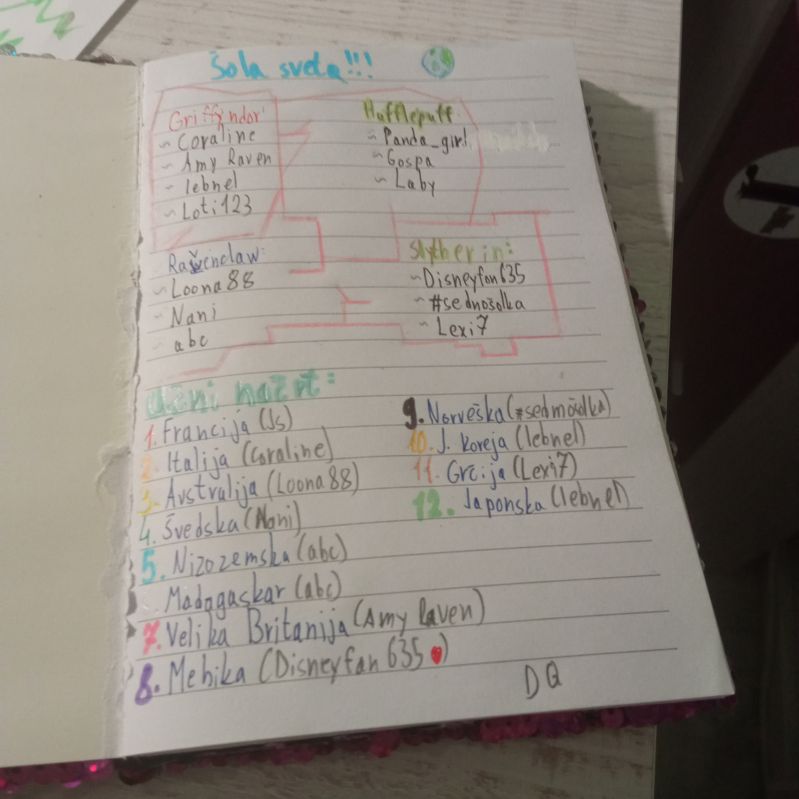 Šola sveta!!!
Griffyndor:
~ Coraline
~ Amy Raven
~ lebnel
~ Loti123
Hufflepuff
~ Panda_girl
~ Gospa
~ Laby
Ravenclaw:
~ Loona88
~ Nani
~ abc
Slytherin:
~ Disneyfan635
~ #sednošolka
~ Lexi7
Učni načrt:
1. Francija (Js)
2. Italija (Coraline)
3. Avstralija (Loona88)
4. Švedska (Nani)
5. Nizozemska (abc)
Madagaskar (abc)
7. Velika Britanija (Amy Raven)
8. Mehika (Disneyfan635)
9. Norveška (#sedmošolka)
10. J. Koreja (lebnel)
11. Grčija (Lexi7)
12. Japonska (lebnel)
DQ